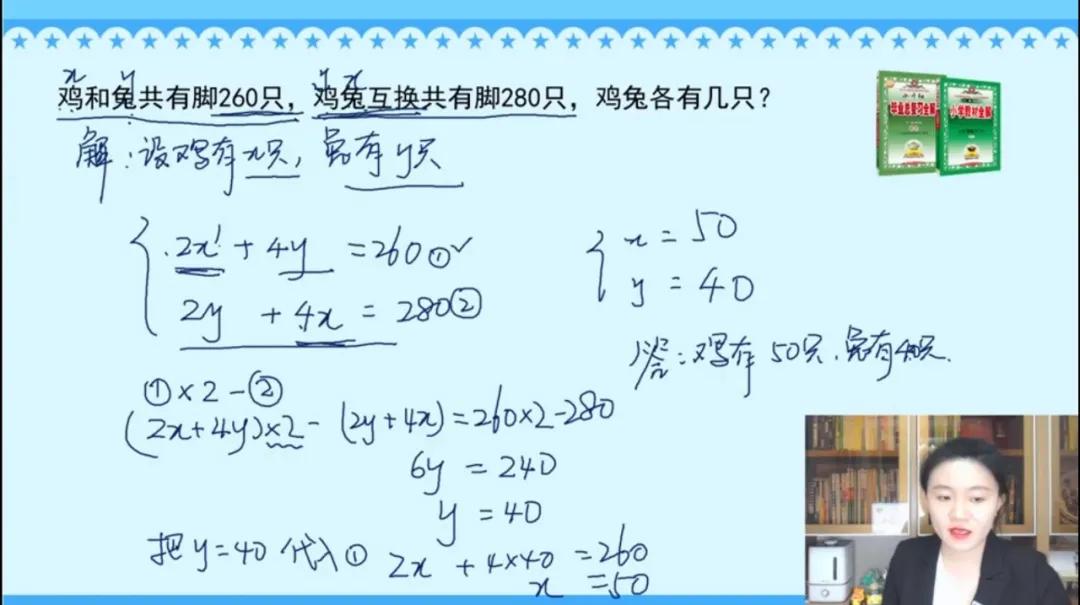 x y y x
鸡和兔共有脚260只，鸡兔互换共有脚280只，鸡兔各有几只？
解：设鸡有x只，兔有y只
2x + 4y = 260①✓
2y + 4x = 280②
①×2-②
(2x+4y)×2-(2y+4x)=260×2-280
6y = 240
y = 40
把y=40代入① 2x + 4×40 = 260
x = 50
x = 50
y = 40
答：鸡有50只，兔有40只.
小学升初中
毕业总复习全解
小学教材全解